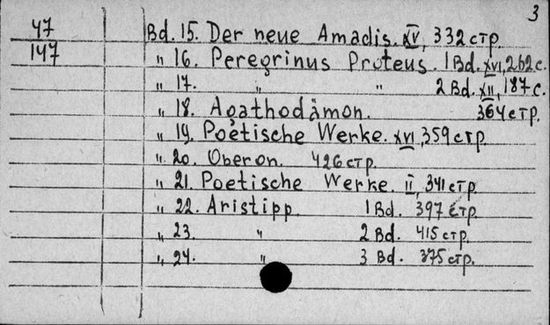 3
47
147
Bd. 15. Der neue Amadis. XV, 332 стр.
„ 16. Peregrinus Proteus. 1 Bd. XVI, 262 с.
„ 17. „ „ 2 Bd. XII, 187 с.
„ 18. Agathodämon. 364 стр.
„ 19. Poëtische Werke. XVI, 359 стр.
„ 20. Oberon. 426 стр.
„ 21. Poetische Werke. II, 341 стр.
„ 22. Aristipp. 1 Bd. 397 стр.
„ 23. „ 2 Bd. 415 стр.
„ 24. „ 3 Bd. 375 стр.